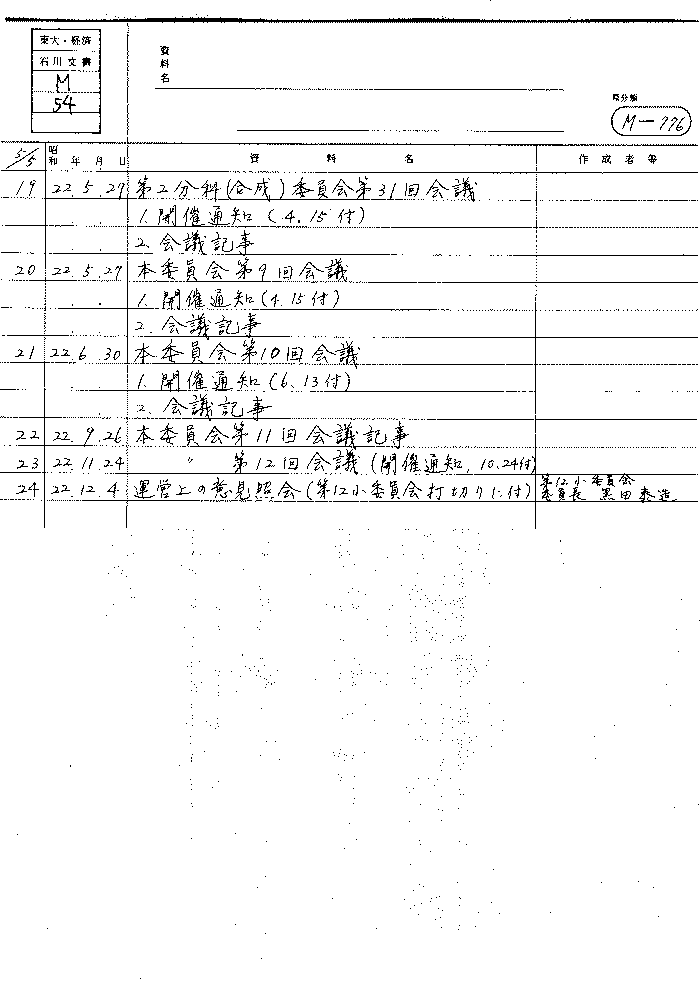 東大・経済
石川文書
M
54
資料名
原分類
M-776
5/5 昭和 年 月 日 資料名 作成者等
19 22.5.27 第2分科(合成)委員会第31回会議
1. 開催通知(4.15付)
2. 会議記事
20 22.5.27 本委員会第9回会議
1. 開催通知(4.15付)
2. 会議記事
21 22.6.30 本委員会第10回会議
1. 開催通知(6.13付)
2. 会議記事
22 22.9.26 本委員会第11回会議記事
23 22.11.24 〃 第12回会議(開催通知, 10.24付)
24 22.12.4 運営上の意見照会(第12小委員会打切りに付) 第12小委員会
委員長 黒田泰造